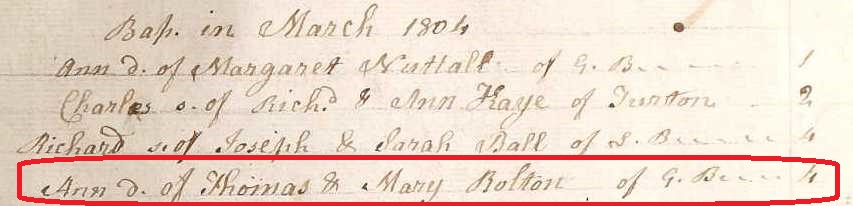 Bap. in March 1804
Ann d. of Margaret Nuttall of G. B 1
Charles s. of Richd & Ann Kaye of Turton 2
Richard s. of Joseph & Sarah Ball of L. B 4
Ann d. of Thomas & Mary Bolton of G. B 4